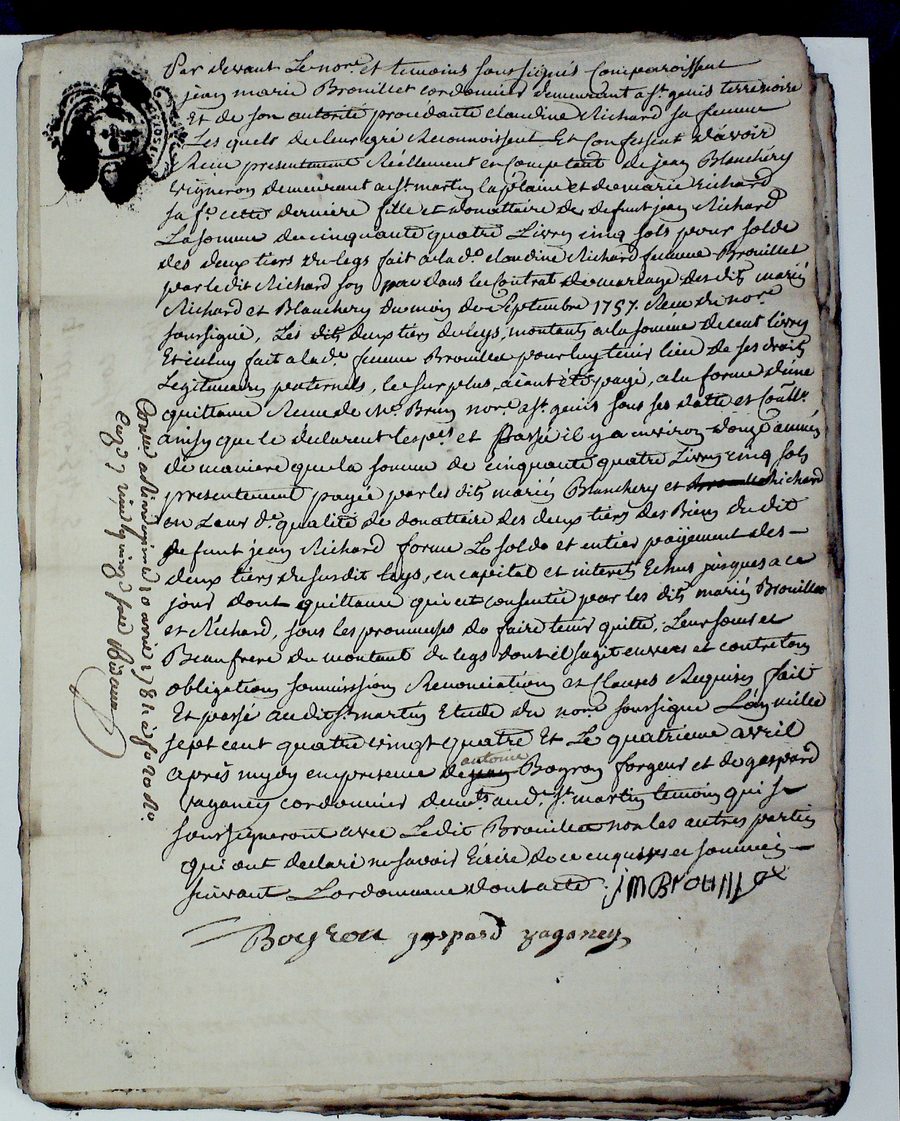 Par devant Le nore. et temoins soussignés Comparoissent
jean marie Brouillet cordonnier demeurant a st. genis terrenoire
Et de son autorité procédante claudine Richard sa femme
Lesquels de leur gré Reconnoissent Et Confessent d'avoir
Recu presentement Réellement et Comptant de jean Blanchery
vigneron demeurant a st martin la plaine et de marie Richard
sa fe. cette derniere fille et donnattaire de defunt jean Richard
La somme de cinquante quatre Livres cinq sols pour solde
des deux tiers du legs fait a lade. claudine Richard femme Brouillet
par ledit Richard son pere dans le Contrat de mariage des dits mariés
Richard et Blanchery du mois de Septembre 1757. Recu du nore.
soussigné, Les dits deux tiers du legs, montants a la somme de cent livres
Et iceluy fait a lade. femme Brouillet pour luy tenir lieu de ses droits
Legitimaires paternels, le surplus, aiant été payé, a la forme d'une
quittance Recue de Me. Brun nore. a st. genis sous sa datte et
ainsy que le déclarent lespes et passé il y a environ douze années
de maniere que la somme de cinquante quatre Livres cinq sols
presentement payée par les dits mariés Blanchery et Richard
en Leur de. qualité de donattaire des deux tiers des Biens du dit
defunt jean Richard forme Le solde et entier payement des
deux tiers du susdit legs, en capital et interets Echus jusques a ce
jour dont quittance qui est consentie par les dits mariés Brouillet
et Richard, sous les promesses de faire tenir quitte, Leur soeur et
Beaufrere du montant du legs dont il s'agit envers et contre tous
obligations soumissions Renonciations et Clauses Requises fait
Et passé audit st. martin Etude du nore. soussigné L'an mille
sept cent quatre vingt quatre Et Le quatrieme avril
après midy en presence de antoine Boyron forgeur et de gaspard
vaganey cordonnier demts. aud. st. martin temoins qui se
soussigneront avec Ledit Brouillet non les autres parties
qui ont declaré ne savoir Ecrire de ce enquises et sommées
suivant L'ordonnance dont acte. JM Brouillet
Boyron gaspard vaganey